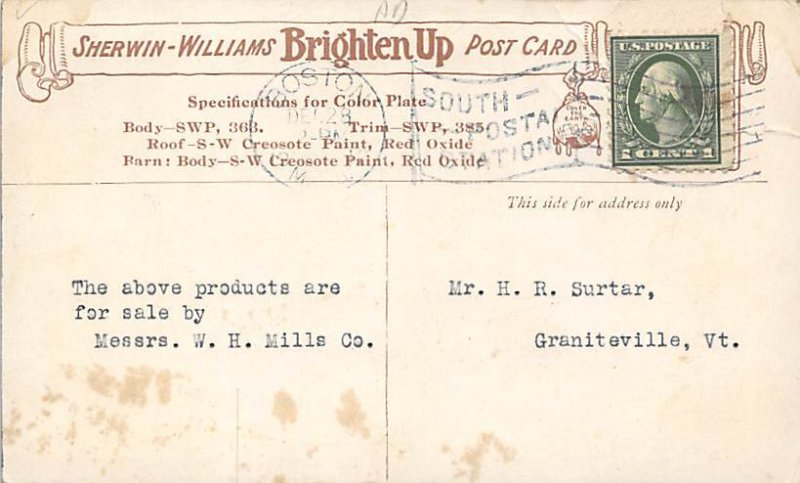 AD
SHERWIN-WILLIAMS Brighten Up POST CARD
U.S. POSTAGE
1 CENT 1
BOSTON
DEC 28
M
SOUTH
POSTA
ATION
COVER
THE
EARTH
Specifications for Color Plate
Body—SWP, 368. Trim—SWP, 385
Roof—S-W Creosote Paint, Red Oxide
Barn: Body—S-W Creosote Paint, Red Oxide
This side for address only
The above products are
for sale by
Messrs. W. H. Mills Co.
Mr. H. R. Surtar,
Graniteville, Vt.